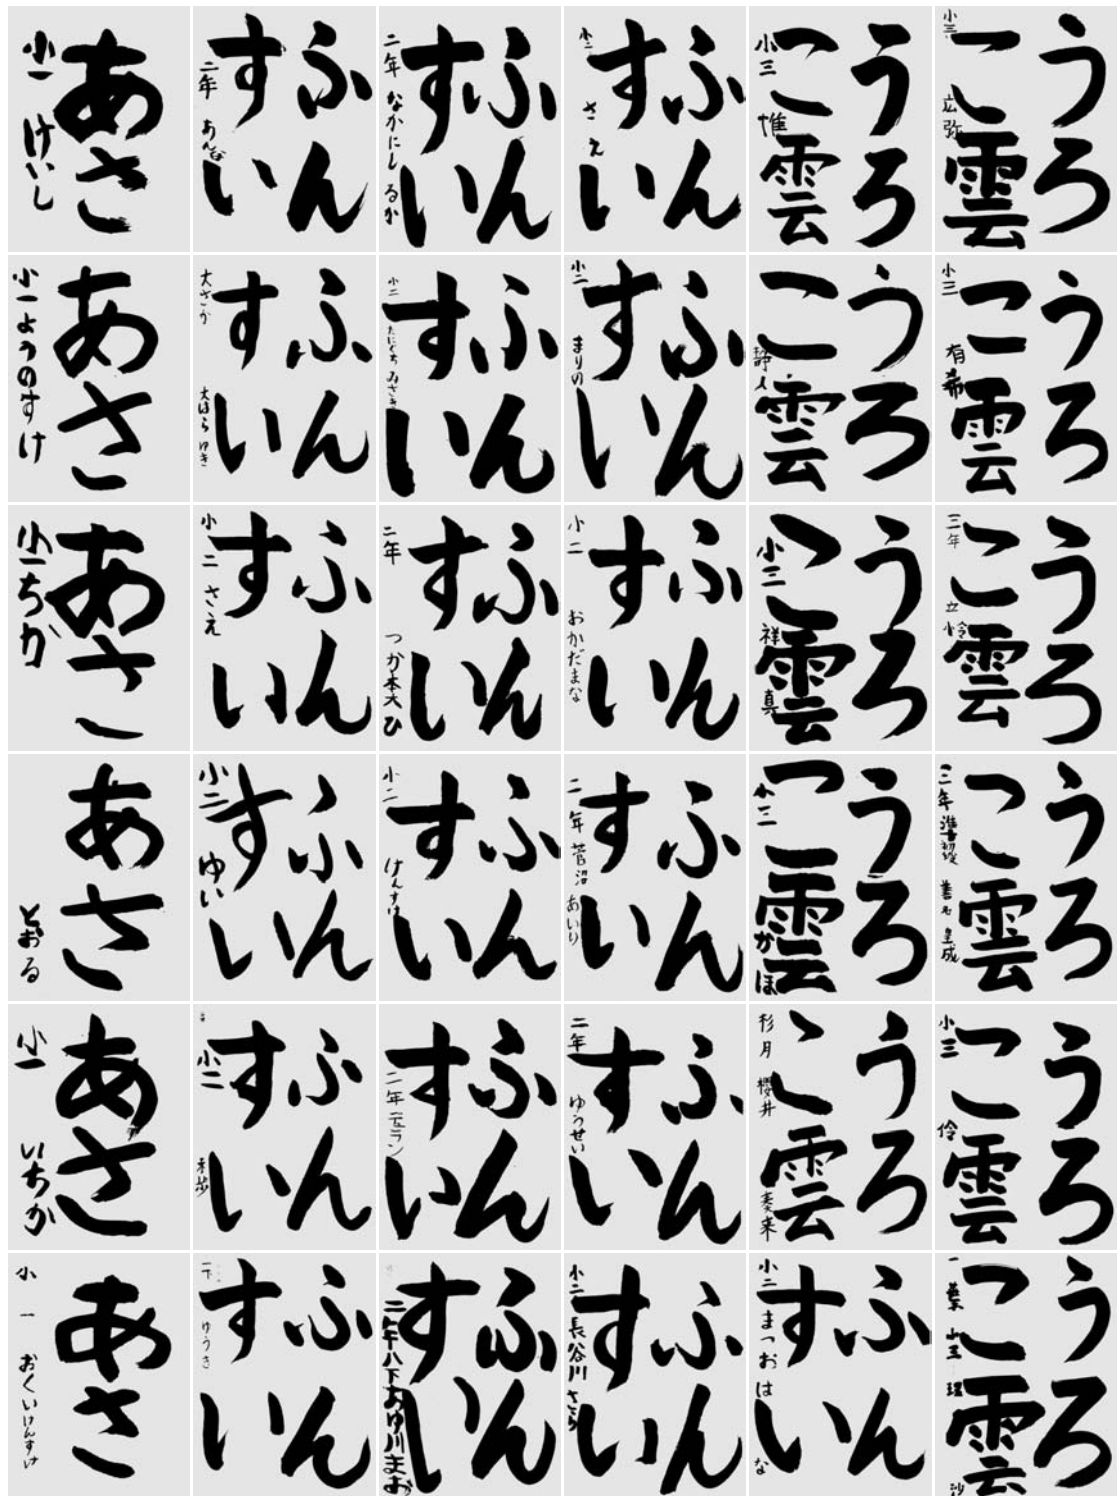 あさ
小一 けいし
ふん
すい
二年 あんな
ふん
すい
二年 なかにし るか
ふん
すい
小二 さえ
うろ
こ雲
小三 惟
うろ
こ雲
小三 広弥
あさ
小一 ようのすけ
ふん
すい
大さか 大はら ゆき
ふん
すい
小二 たにぐち みさき
ふん
すい
小二 まりの
うろ
こ雲
静人
うろ
こ雲
小三 有希
あさ
小一 ちか
ふん
すい
小二 さえ
ふん
すい
二年 つか本大ひ
ふん
すい
小二 おかだまな
うろ
こ雲
小三 祥真
うろ
こ雲
三年 立怜
あさ
とおる
ふん
すい
小二 ゆい
ふん
すい
小二 けんすけ
ふん
すい
二年 菅沼 あいり
うろ
こ雲
小三 かほ
うろ
こ雲
三年
あさ
小一 いちか
ふん
すい
小二
ふん
すい
二年
ふん
すい
二年 ゆうせい
うろ
こ雲
杉月 櫻井
うろ
こ雲
小三 伶
あさ
小一 おくいけんすけ
ふん
すい
ゆうき
ふん
すい
ふん
すい
小二 長谷川 さくら
ふん
すい
小二 まつおはな
うろ
こ雲